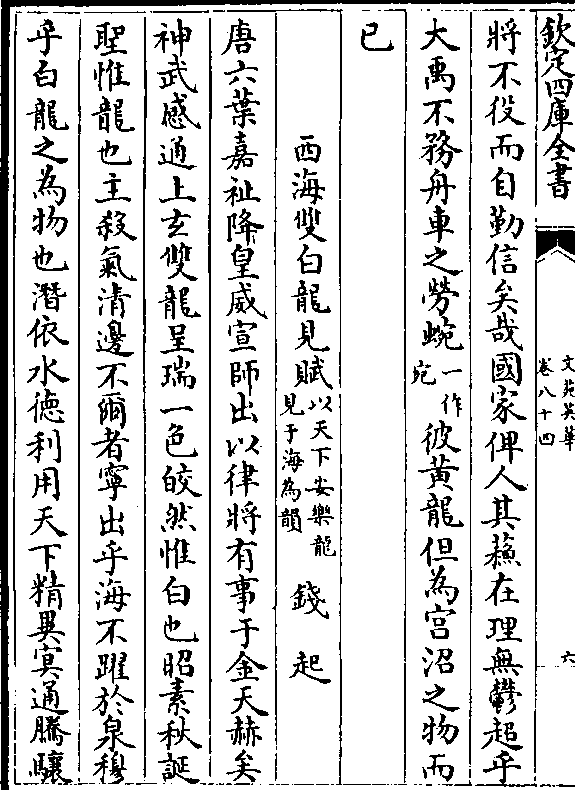 欽定四庫全書
文苑英華
卷八十四
六
將不役而自勤信矣哉國家俾人其蘓在理無鬱超乎
大禹不務舟車之勞蜿一作宛彼黃龍但為宮沼之物而
已
西海雙白龍見賦以天下安樂龍見于海為韻 錢起
唐六葉嘉祉降皇威宣師出以律將有事于金天赫矣
神武感通上玄雙龍呈瑞一色皎然惟白也昭素秋誕
聖惟龍也主殺氣清邊不爾者寧出乎海不躍於泉穆
乎白龍之為物也潛依水德利用天下精異冥通騰驤